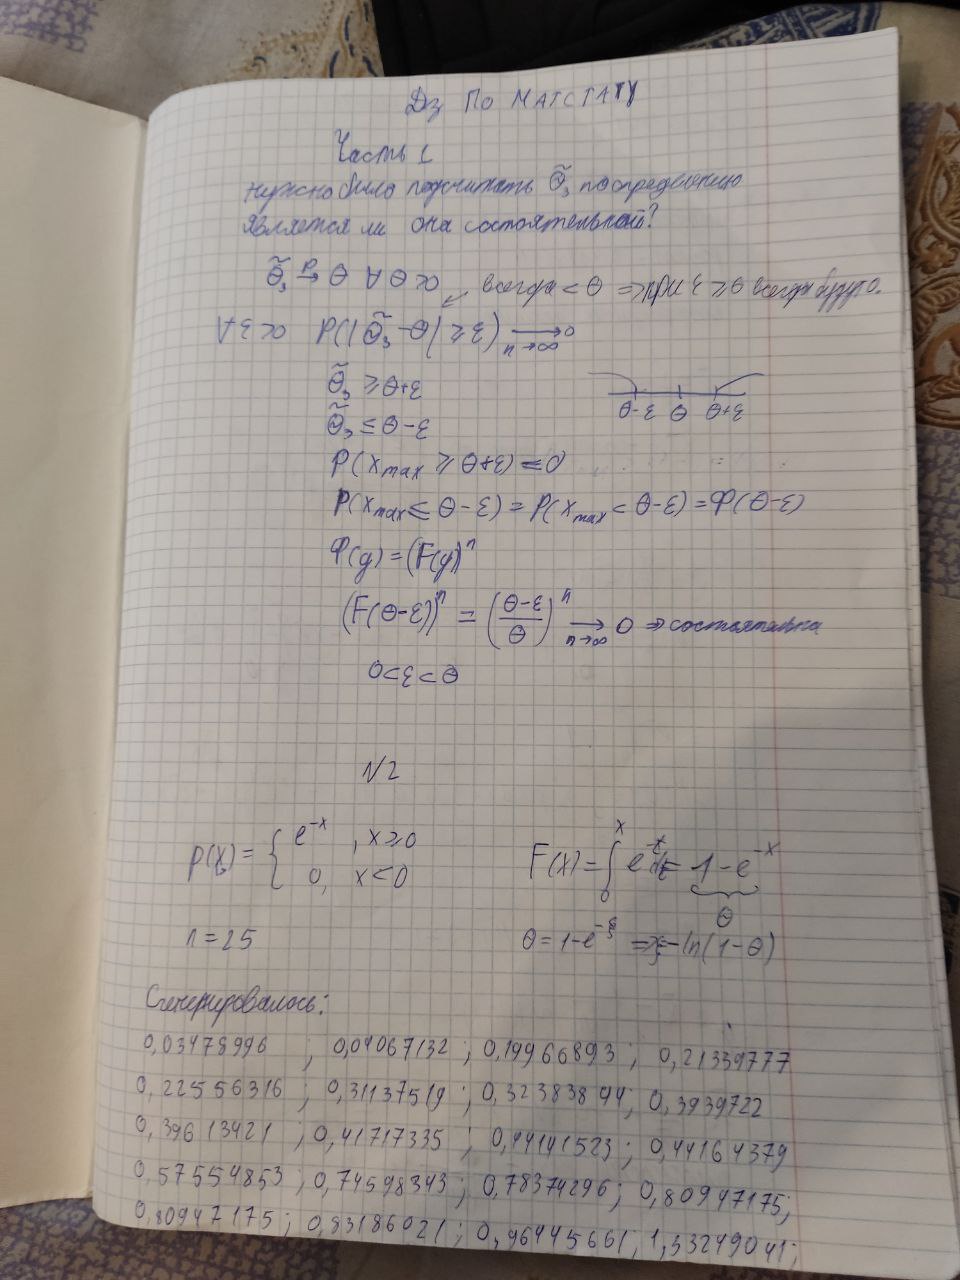 Дз ПО МАТСТАТУ
Часть 1
Нужно было подсчитать θ̃₃ по определению
Является ли она состоятельной?
θ̃₃ →ᵖ θ ∀ θ>0 всегда < θ => при ε ≥ θ всегда будет 0.
∀ε>0 P(|θ̃₃-θ| ≥ε) ⟶ 0 n→∞
θ̃₃ ≥ θ+ε
θ̃₃ ≤ θ-ε
θ-ε θ θ+ε
P(x_max ≥ θ+ε) = 0
P(x_max ≤ θ-ε) = P(x_max < θ-ε) = Φ(θ-ε)
Φ(y) = (F(y))ⁿ
(F(θ-ε))ⁿ = ((θ-ε)/θ)ⁿ ⟶ 0 n→∞ => состоятельна
0<ε<θ
N2
p(x) = { e^{-x}, x≥0
0, x<0
F(x) = ∫₀ˣ e^{-t}dt = 1-e^{-x}
θ
n=25
θ = 1-e^{-ξ} => ξ=-ln(1-θ)
Сгенерировалось:
0,03478996 ; 0,04067132 ; 0,19966893 ; 0,21339777
0,22556316 ; 0,31137519 ; 0,32383844 ; 0,3939722
0,39613421 ; 0,41717335 ; 0,44141523 ; 0,44164379
0,57554853 ; 0,74598343 ; 0,78374296 ; 0,80947175;
0,80947175 ; 0,83186021 ; 0,96445661 ; 1,33249041;